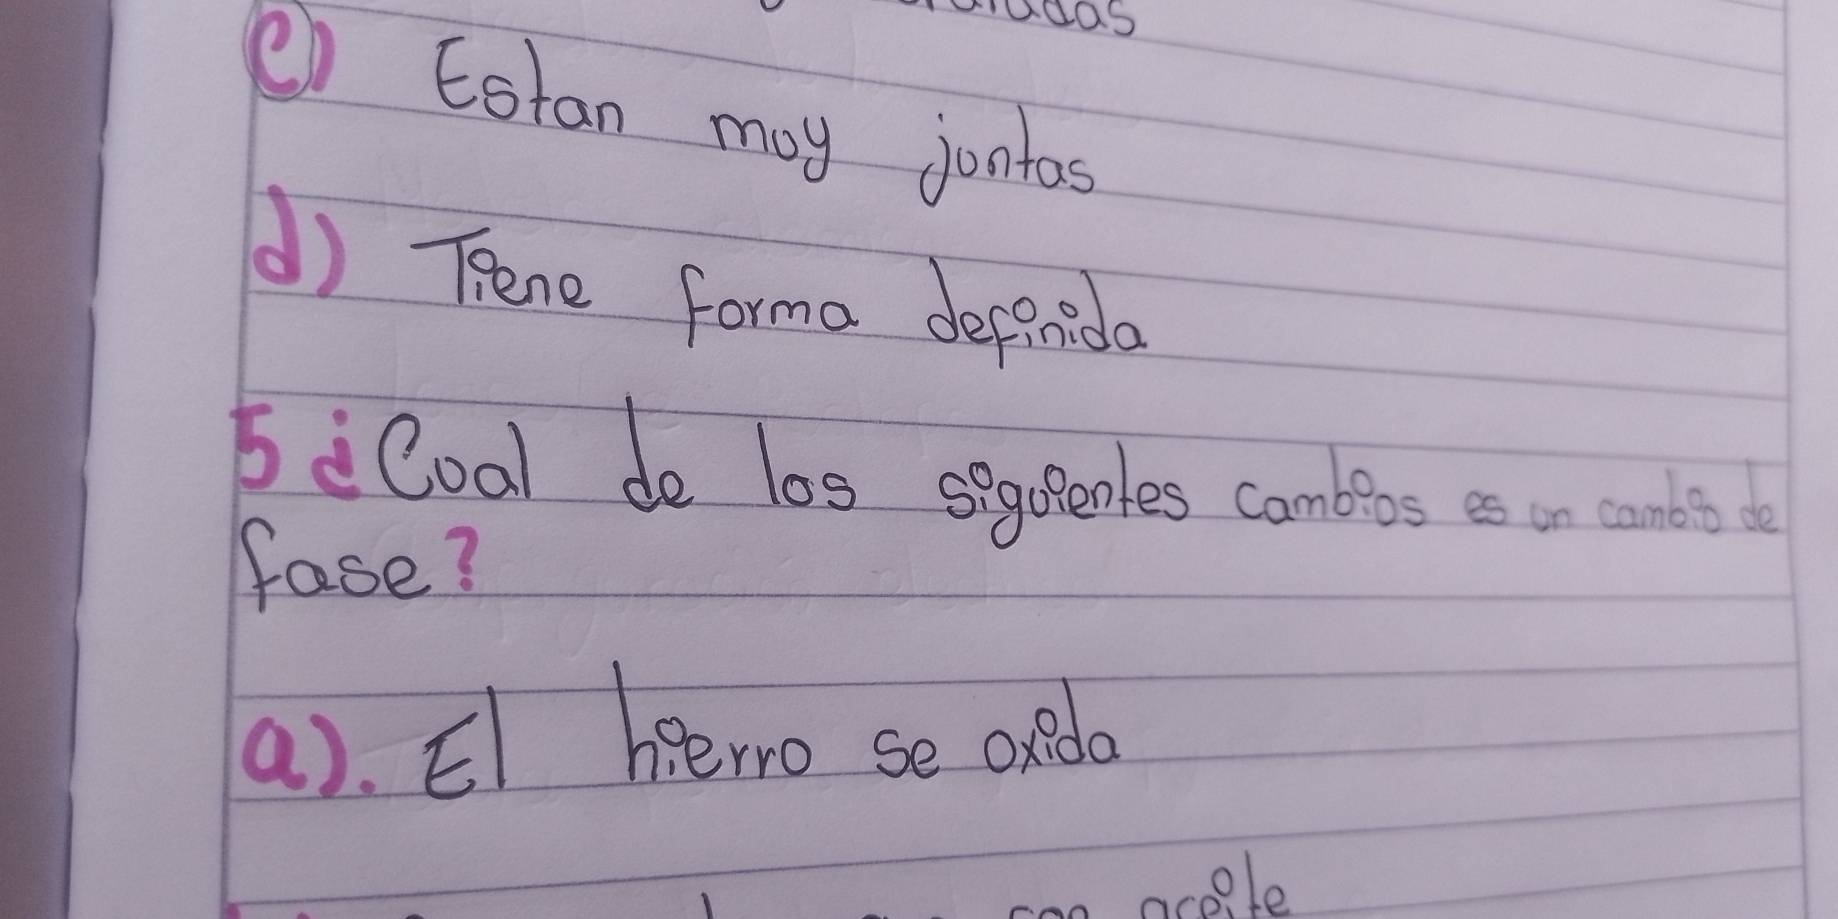 c) Estan muy juntas
d) Tiene forma definida
5 ¿Cual de los siguientes cambios es un cambio de
fase?
a). El hierro se oxida
con aceite